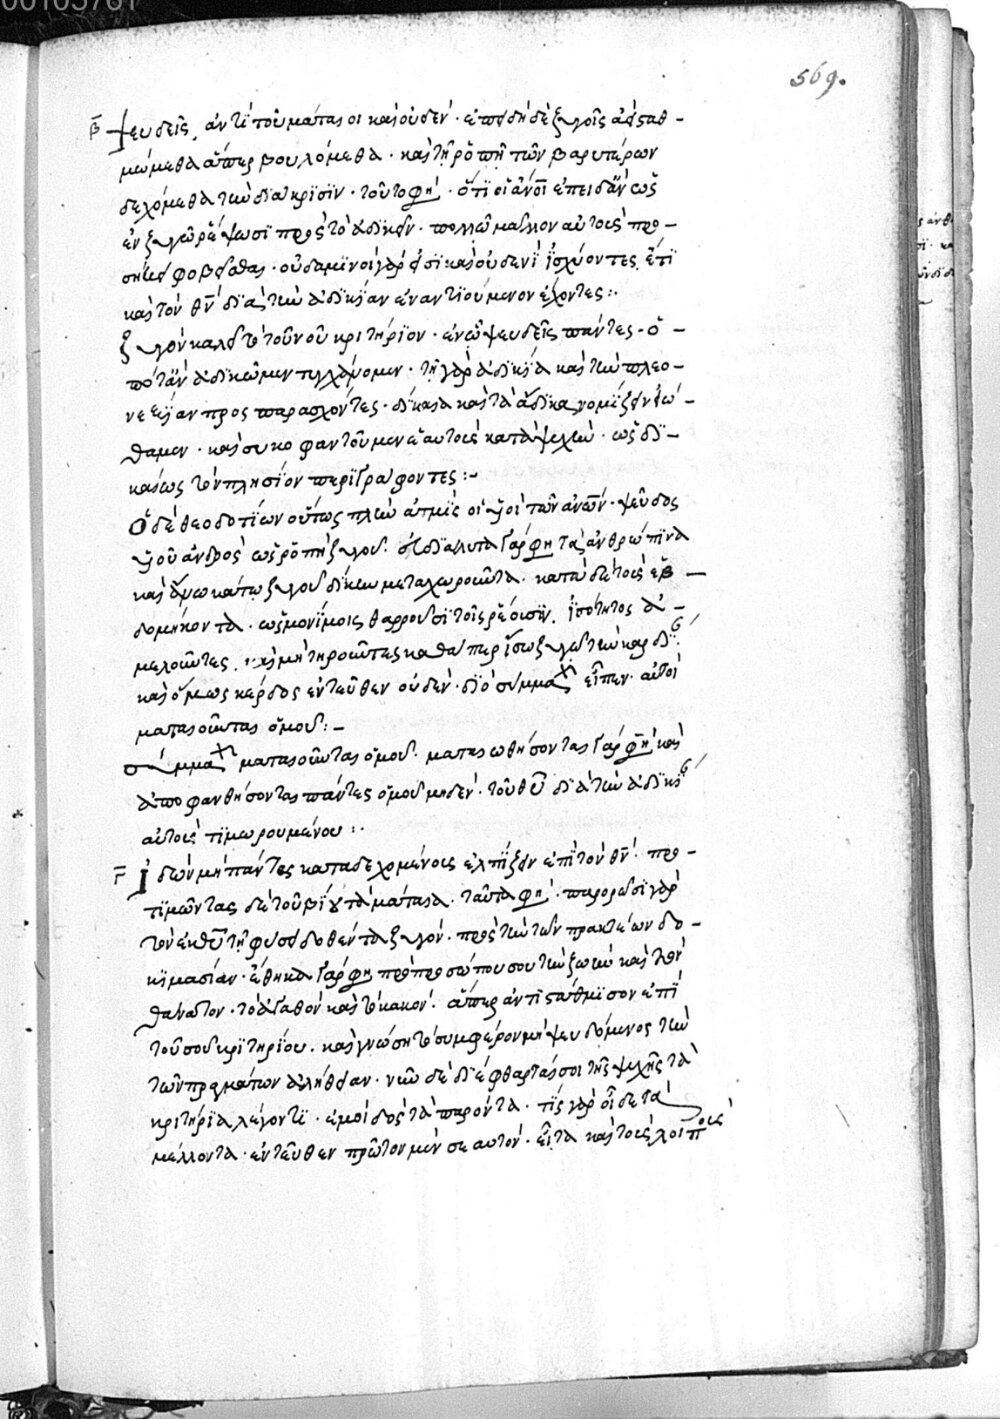 569.
β ψευδεῖς, ἀντὶ τοῦ μάταιοι καὶ οὐδέν· ἐπειδὴ δὲ ζυγοῖς ἀεὶ σταθ-
μώμεθα ἅπερ βουλόμεθα· καὶ τῇ ῥοπῇ τῶν βαρυτέρων
δεχόμεθα τὴν διάκρισιν· τοῦτο φη· ὅτι οἱ ἄνοι ἐπειδὰν ὡς
ἐν ζυγῷ ῥέψωσι πρὸς τὸ ἀδικεῖν· πολλῷ μᾶλλον αὐτοὺς προ-
σήκει φοβεῖσθαι· οὐδαμινοὶ γάρ εἰσι καὶ οὐδενὶ ἰσχύοντες, ἔτι
καὶ τὸν θν διὰ τὴν ἀδικίαν ἐναντιούμενον ἔχοντες:
ζυγὸν καλεῖ τὸ τοῦ νοῦ κριτήριον· ἐν ᾧ ψευδεῖς πάντες· ὁ-
πόταν ἀδικῶμεν τυγχάνομεν· τῇ γὰρ ἀδικίᾳ καὶ τὴν πλεο-
νεξίαν προς παρασχόντες· δίκαια καὶ τὰ ἄδικα νομίζειν εἰώ-
θαμεν· καὶ συκοφαντοῦμεν ἑαυτοὺς κατὰ ψυχὴν· ὡς δι-
καίως τὸν πλησίον περιγράφοντες:-
Ὁ δὲ θεοδοτίων οὕτως πλὴν ἀτμὶς οἱ υἱοὶ τῶν ἀνων· ψεῦδος
υἱοὶ ἀνδρὸς ὡς ῥοπὴ ζυγοῦ· εὐδιάλυτα γάρ φη τὰ ἀνθρώπινα
καὶ ἄνω κάτω ζυγοῦ δίκην μεταχωροῦντα· κατὰ δὲ τοὺς ἑβ-
δομήκοντα· ὡς μονίμοις θαρροῦσι τοῖς ῥέουσιν, ἰσότητος ἀ-
μελοῦντες, καὶ μὴ τηροῦντες καθάπερ ἴσῳ ζυγῷ τὴν καρδι·
καὶ ὅμως κέρδος ἐντεῦθεν οὐδέν· διὸ σύμμαχ εἶπεν· αὐτοὶ
ματαιοῦνται ὁμοῦ:-
σύμμαχ ματαιοῦνται ὁμοῦ· ματαιωθήσονται γάρ φη καὶ
ἀποφανθήσονται πάντες ὁμοῦ μηδέν· τοῦ θυ διὰ τὴν ἀδικι
αὐτοὺς τιμωρουμένου:·
γ Ἰδὼν μὴ πάντας καταδεχομένους ἐλπίζειν ἐπὶ τὸν θν· προ-
τιμῶντας δὲ τοῦ βίου τὰ μάταια· ταῦτα φη· παρορῶσι γὰρ
τὸν ἐκ θυ τῇ φύσει δοθέντα ζυγόν· πρὸς τὴν τῶν πρακτέων δο-
κιμασίαν· ἔθηκα γάρ φη πρὸ προσώπου σου τὴν ζωὴν καὶ τὸν
θάνατον· τὸ ἀγαθὸν καὶ τὸ κακόν· ἅπερ ἀντιστάθμισον ἐπὶ
τοῦ σοῦ κριτηρίου· καὶ γνώσῃ τὸ συμφέρον μὴ ψευδόμενος τὴν
τῶν πραγμάτων ἀλήθειαν· νῦν δὲ διέφθαρταί σοι τῆς ψυχῆς τὰ
κριτήρια λέγοντι· ἐμοὶ δὸς τὰ παρόντα· τίς γὰρ οἶδε τὰ
μέλλοντα· ἐντεῦθεν πρῶτον μὲν σεαυτὸν· εἶτα καὶ τοὺς λοιποὺς